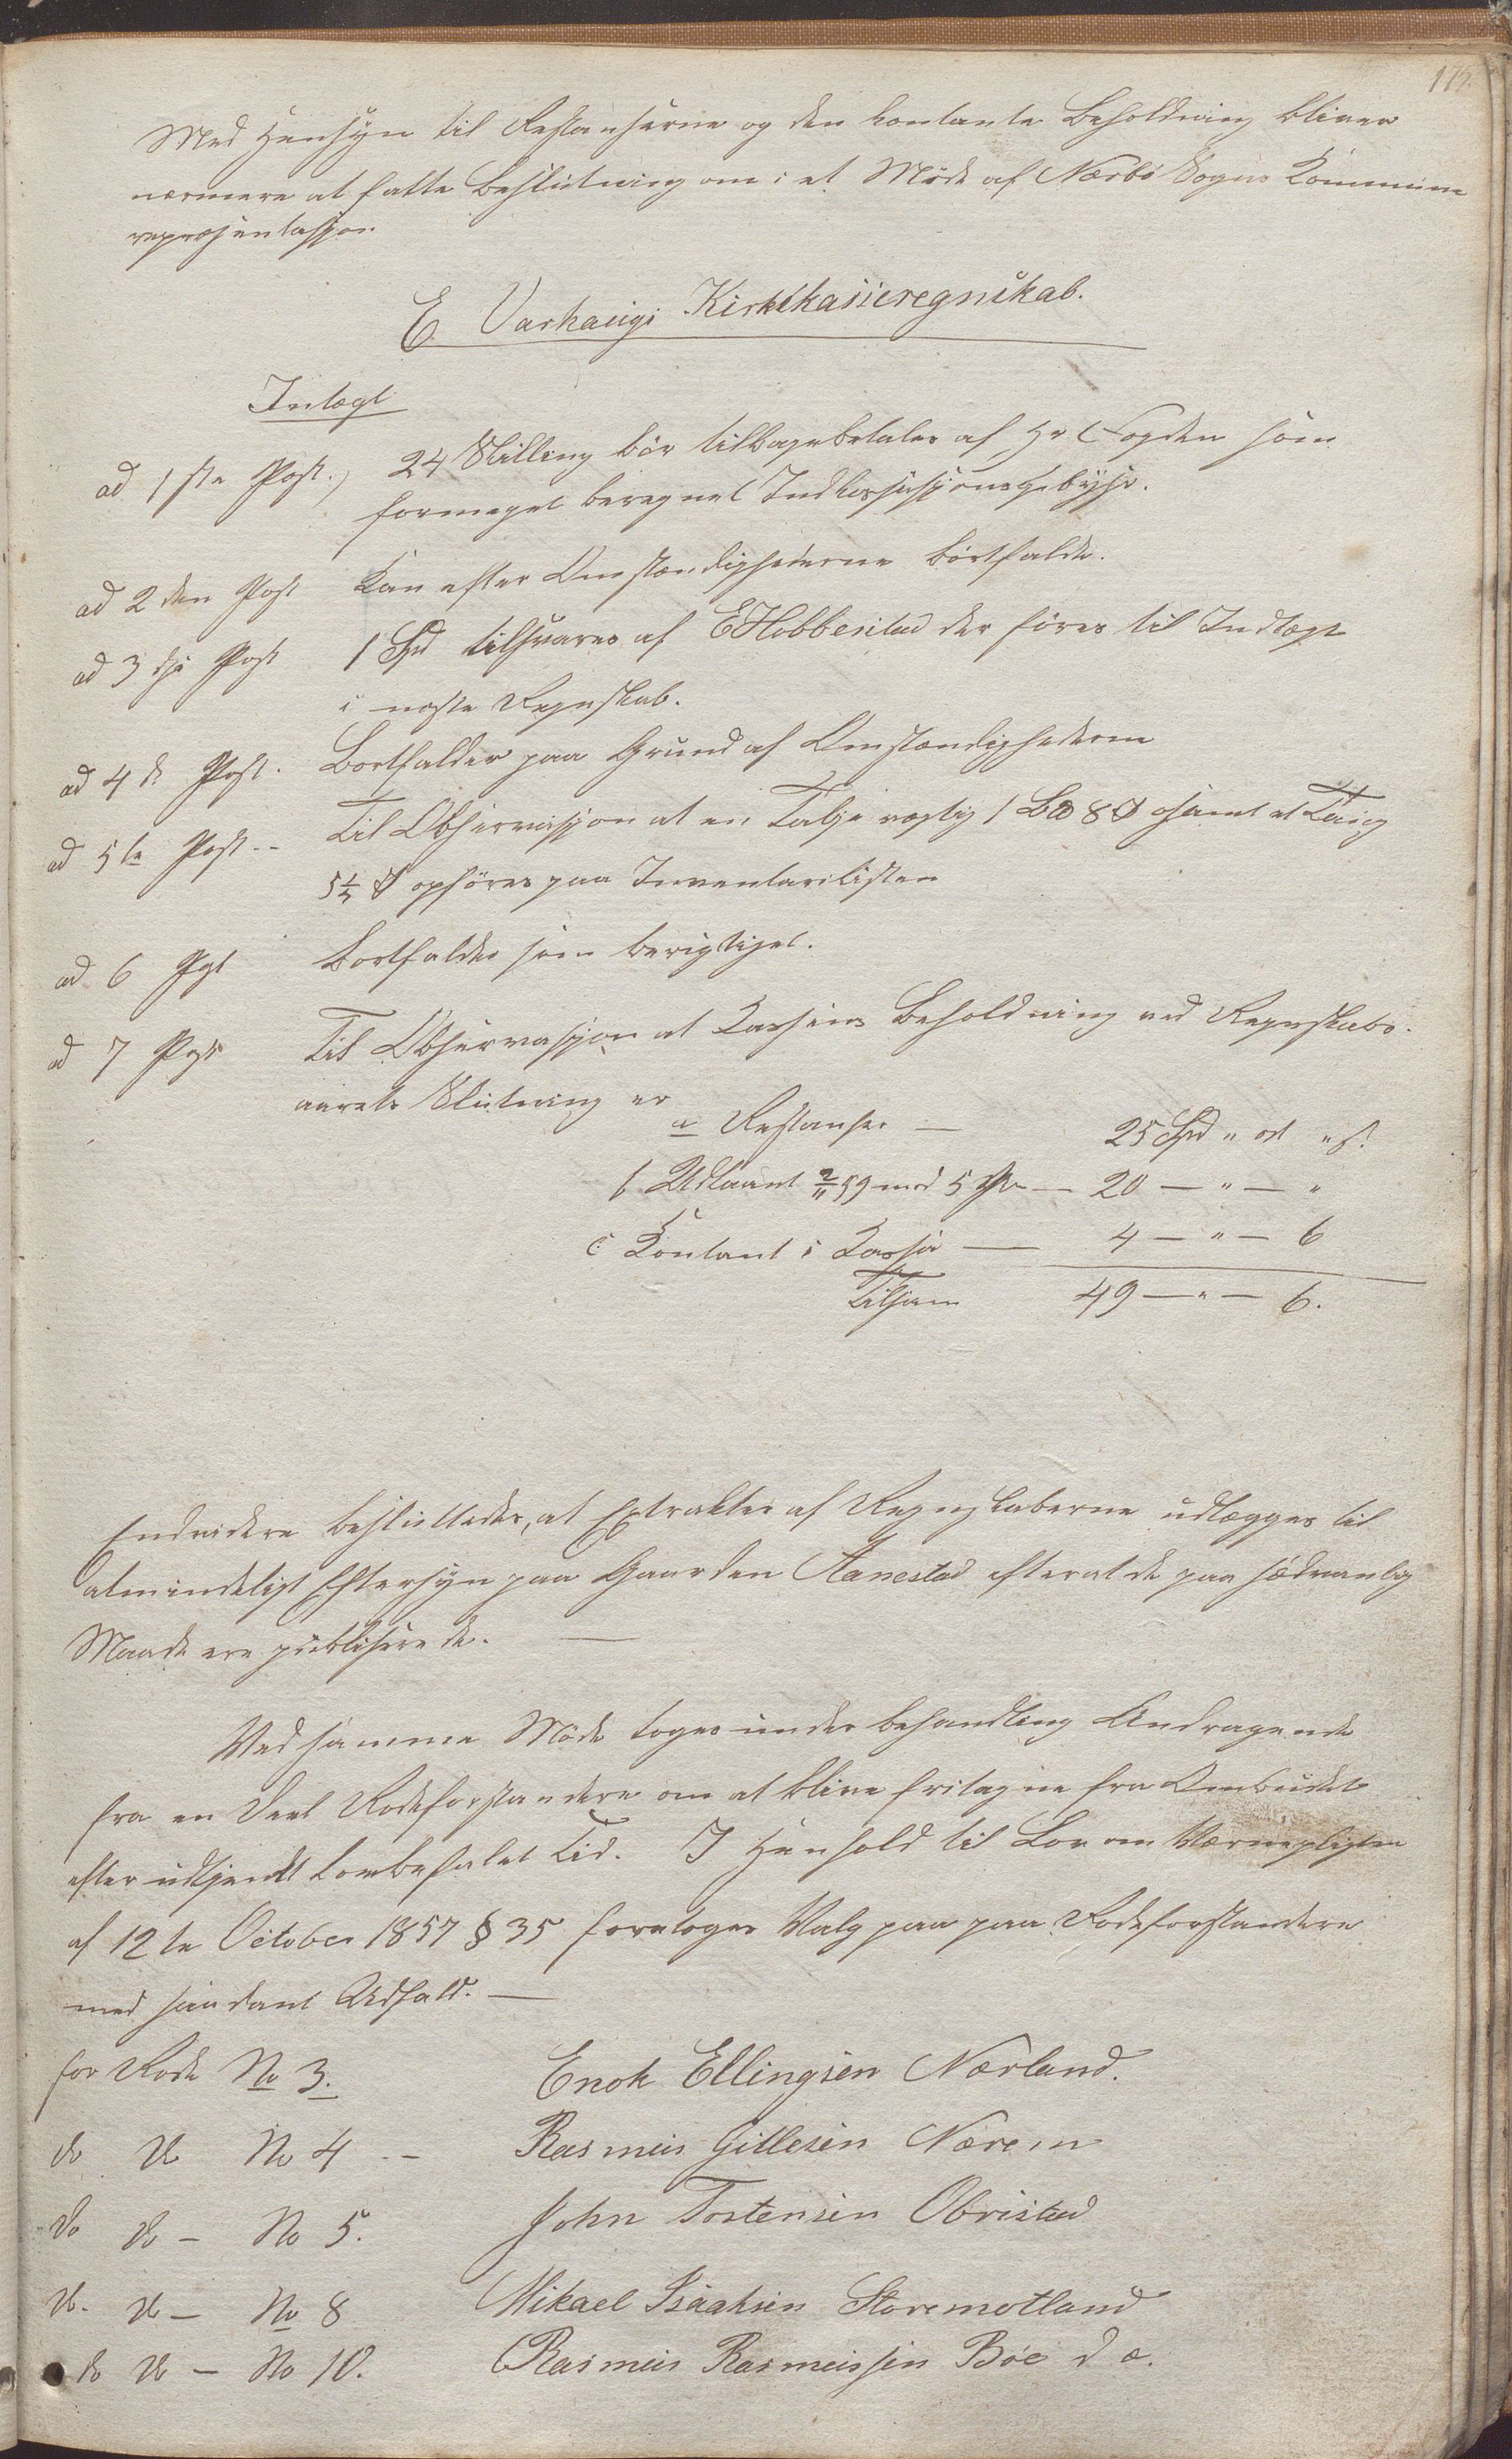 175.
Med Hensyn til Restanserne og den kontante Beholdning bliver
nærmere at fatte Beslutning om i et Møde af Nærbø Sogns Kommune
repræsentasjon
E Varhaugs Kirkekasseregnskab.
Indtægt
ad 1ste Post.) 24 Skilling bør tilbagebetales af Hr Fogden som
formeget beregnet Indkassasjonsgebyhr.
ad 2den Post Kan efter Omstændighederne bortfalde.
ad 3die Post 1 Spd tilsvares af E Hobberstad der føres til Indtægt
i næste Regnskab.
ad 4de Post. Bortfalder paa Grund af Omstændighederne
ad 5te Post -- Til Observasjon at en Talje vægtig 1 B℔ 8 ℔ samt et Toug
5½ ℔ opføres paa Inventarielisten
ad 6 Pst Bortfalder som berigtiget.
ad 7 Pst Til Observasjon at Kassens Beholdning ved Regnskabs-
aarets Slutning er
a Restanser — 25 Spd " ort " s.
b Udlaant 2/11 59 mod 5 pr — 20 — " — "
c Kontant i Kassa — 4 — " — 6
Tilsam 49 — " — 6.
Endvidere besluttedes, at Extrakter af Regnskaberne udlægges til
almindeligt Eftersyn paa Gaarden Aanestad efterat de paa sædvanlig
Maade ere publiserede. —
Ved samme Møde toges under behandling Andragende
fra en Deel Rodeforstandere om at blive fritagne fra Ombudet
efter udtjent lovbefalet Tid. I Henhold til Lov om Værnepligten
af 12te October 1857 § 35 foretoges Valg paa paa Rodeforstandere
med saadant Udfald. —
for Rode No 3. Enok Ellingsen Nærland.
do do No 4 -- Rasmus Gitlesen Nærem
do do — No 5. John Tostensen Obrestad
do. do — No 8 Mikael Isaaksen Storemotland
do do — No 10. Rasmus Rasmussen Bøe d æ.